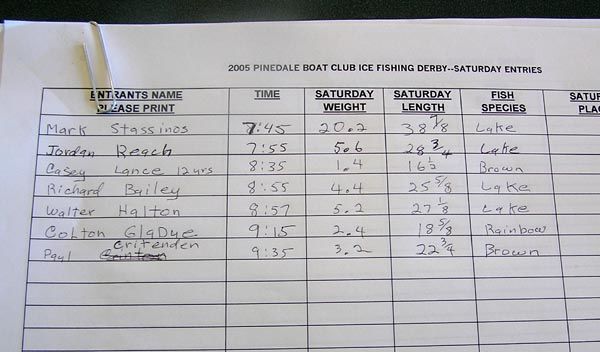 2005 PINEDALE BOAT CLUB ICE FISHING DERBY--SATURDAY ENTRIES
ENTRANTS NAME PLEASE PRINT TIME SATURDAY WEIGHT SATURDAY LENGTH FISH SPECIES SATUR PLA
Mark Stassinos 7:45 20.2 38 7/8 Lake
Jordan Reach 7:55 5.6 28 3/4 Lake
Casey Lance 12yrs 8:35 1.4 16 1/2 Brown
Richard Bailey 8:55 4.4 25 5/8 Lake
Walter Halton 8:57 5.2 27 1/8 Lake
Colton GlaDue 9:15 2.4 18 5/8 Rainbow
Paul Critenden 9:35 3.2 22 3/4 Brown